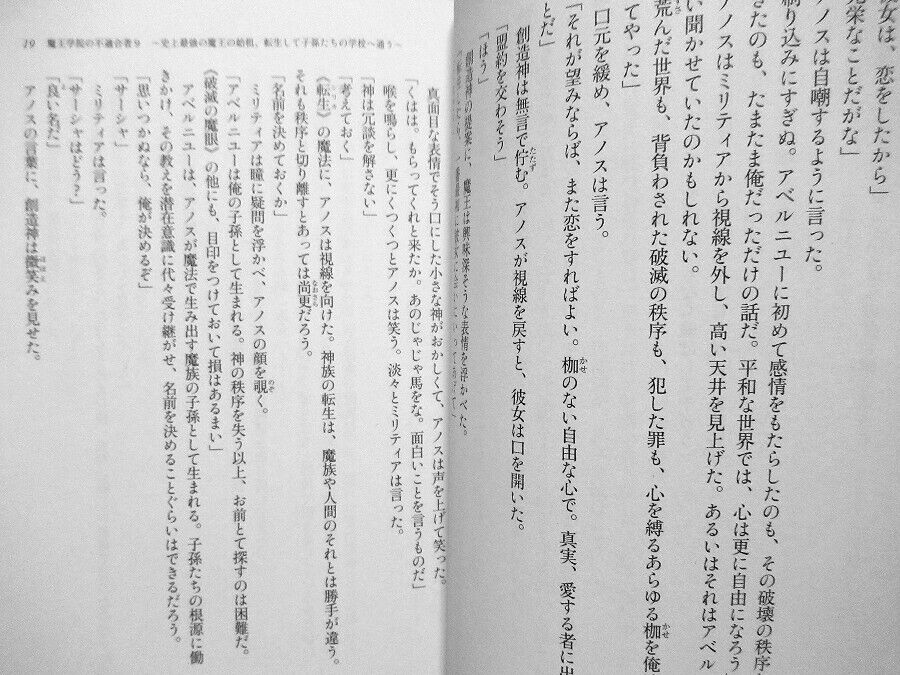 女は、恋をしたから」
栄なことだがな」
アノスは自嘲するように言った。
り込みにすぎぬ。アベルニユーに初めて感情をもたらしたのも、その破壊の秩序
きたのも、たまたま俺だっただけの話だ。平和な世界では、心は更に自由になろう
アノスはミリティアから視線を外し、高い天井を見上げた。あるいはそれはアベル
い聞かせていたのかもしれない。
荒んだ世界も、背負わされた破滅の秩序も、犯した罪も、心を縛るあらゆる枷を俺
てやった」
口元を緩め、アノスは言う。
それが望みならば、また恋をすればよい。枷のない自由な心で。真実、愛する者に出
とだ」
創造神は無言で佇む。アノスが視線を戻すと、彼女は口を開いた。
「盟約を交わそう」
「ほう」
創造神の提案に、魔王は興味深そうな表情を浮かべた。
真面目な表情でそう口にした小さな神がおかしくて、アノスは声を上げて笑った。
「くはは。もらってくれと来たか。あのじゃじゃ馬をな。面白いことを言うものだ」
喉を鳴らし、更にくつくつとアノスは笑う。淡々とミリティアは言った。
「神は冗談を解さない」
「考えておく」
《転生》の魔法に、アノスは視線を向けた。神族の転生は、魔族や人間のそれとは勝手が違う。
それも秩序と切り離すとあっては尚更だろう。
「名前を決めておくか」
ミリティアは瞳に疑問を浮かべ、アノスの顔を覗く。
「アベルニユーは俺の子孫として生まれる。神の秩序を失う以上、お前とて探すのは困難だ。
《破滅の魔眼》の他にも、目印をつけておいて損はあるまい」
アベルニユーは、アノスが魔法で生み出す魔族の子孫として生まれる。子孫たちの根源に働
きかけ、その教えを潜在意識に代々受け継がせ、名前を決めることぐらいはできるだろう。
「思いつかぬなら、俺が決めるぞ」
「サーシャ」
ミリティアは言った。
「サーシャはどう?」
「良い名だ」
アノスの言葉に、創造神は微笑みを見せた。
19 魔王学院の不適合者9 ～史上最強の魔王の始祖、転生して子孫たちの学校へ通う～